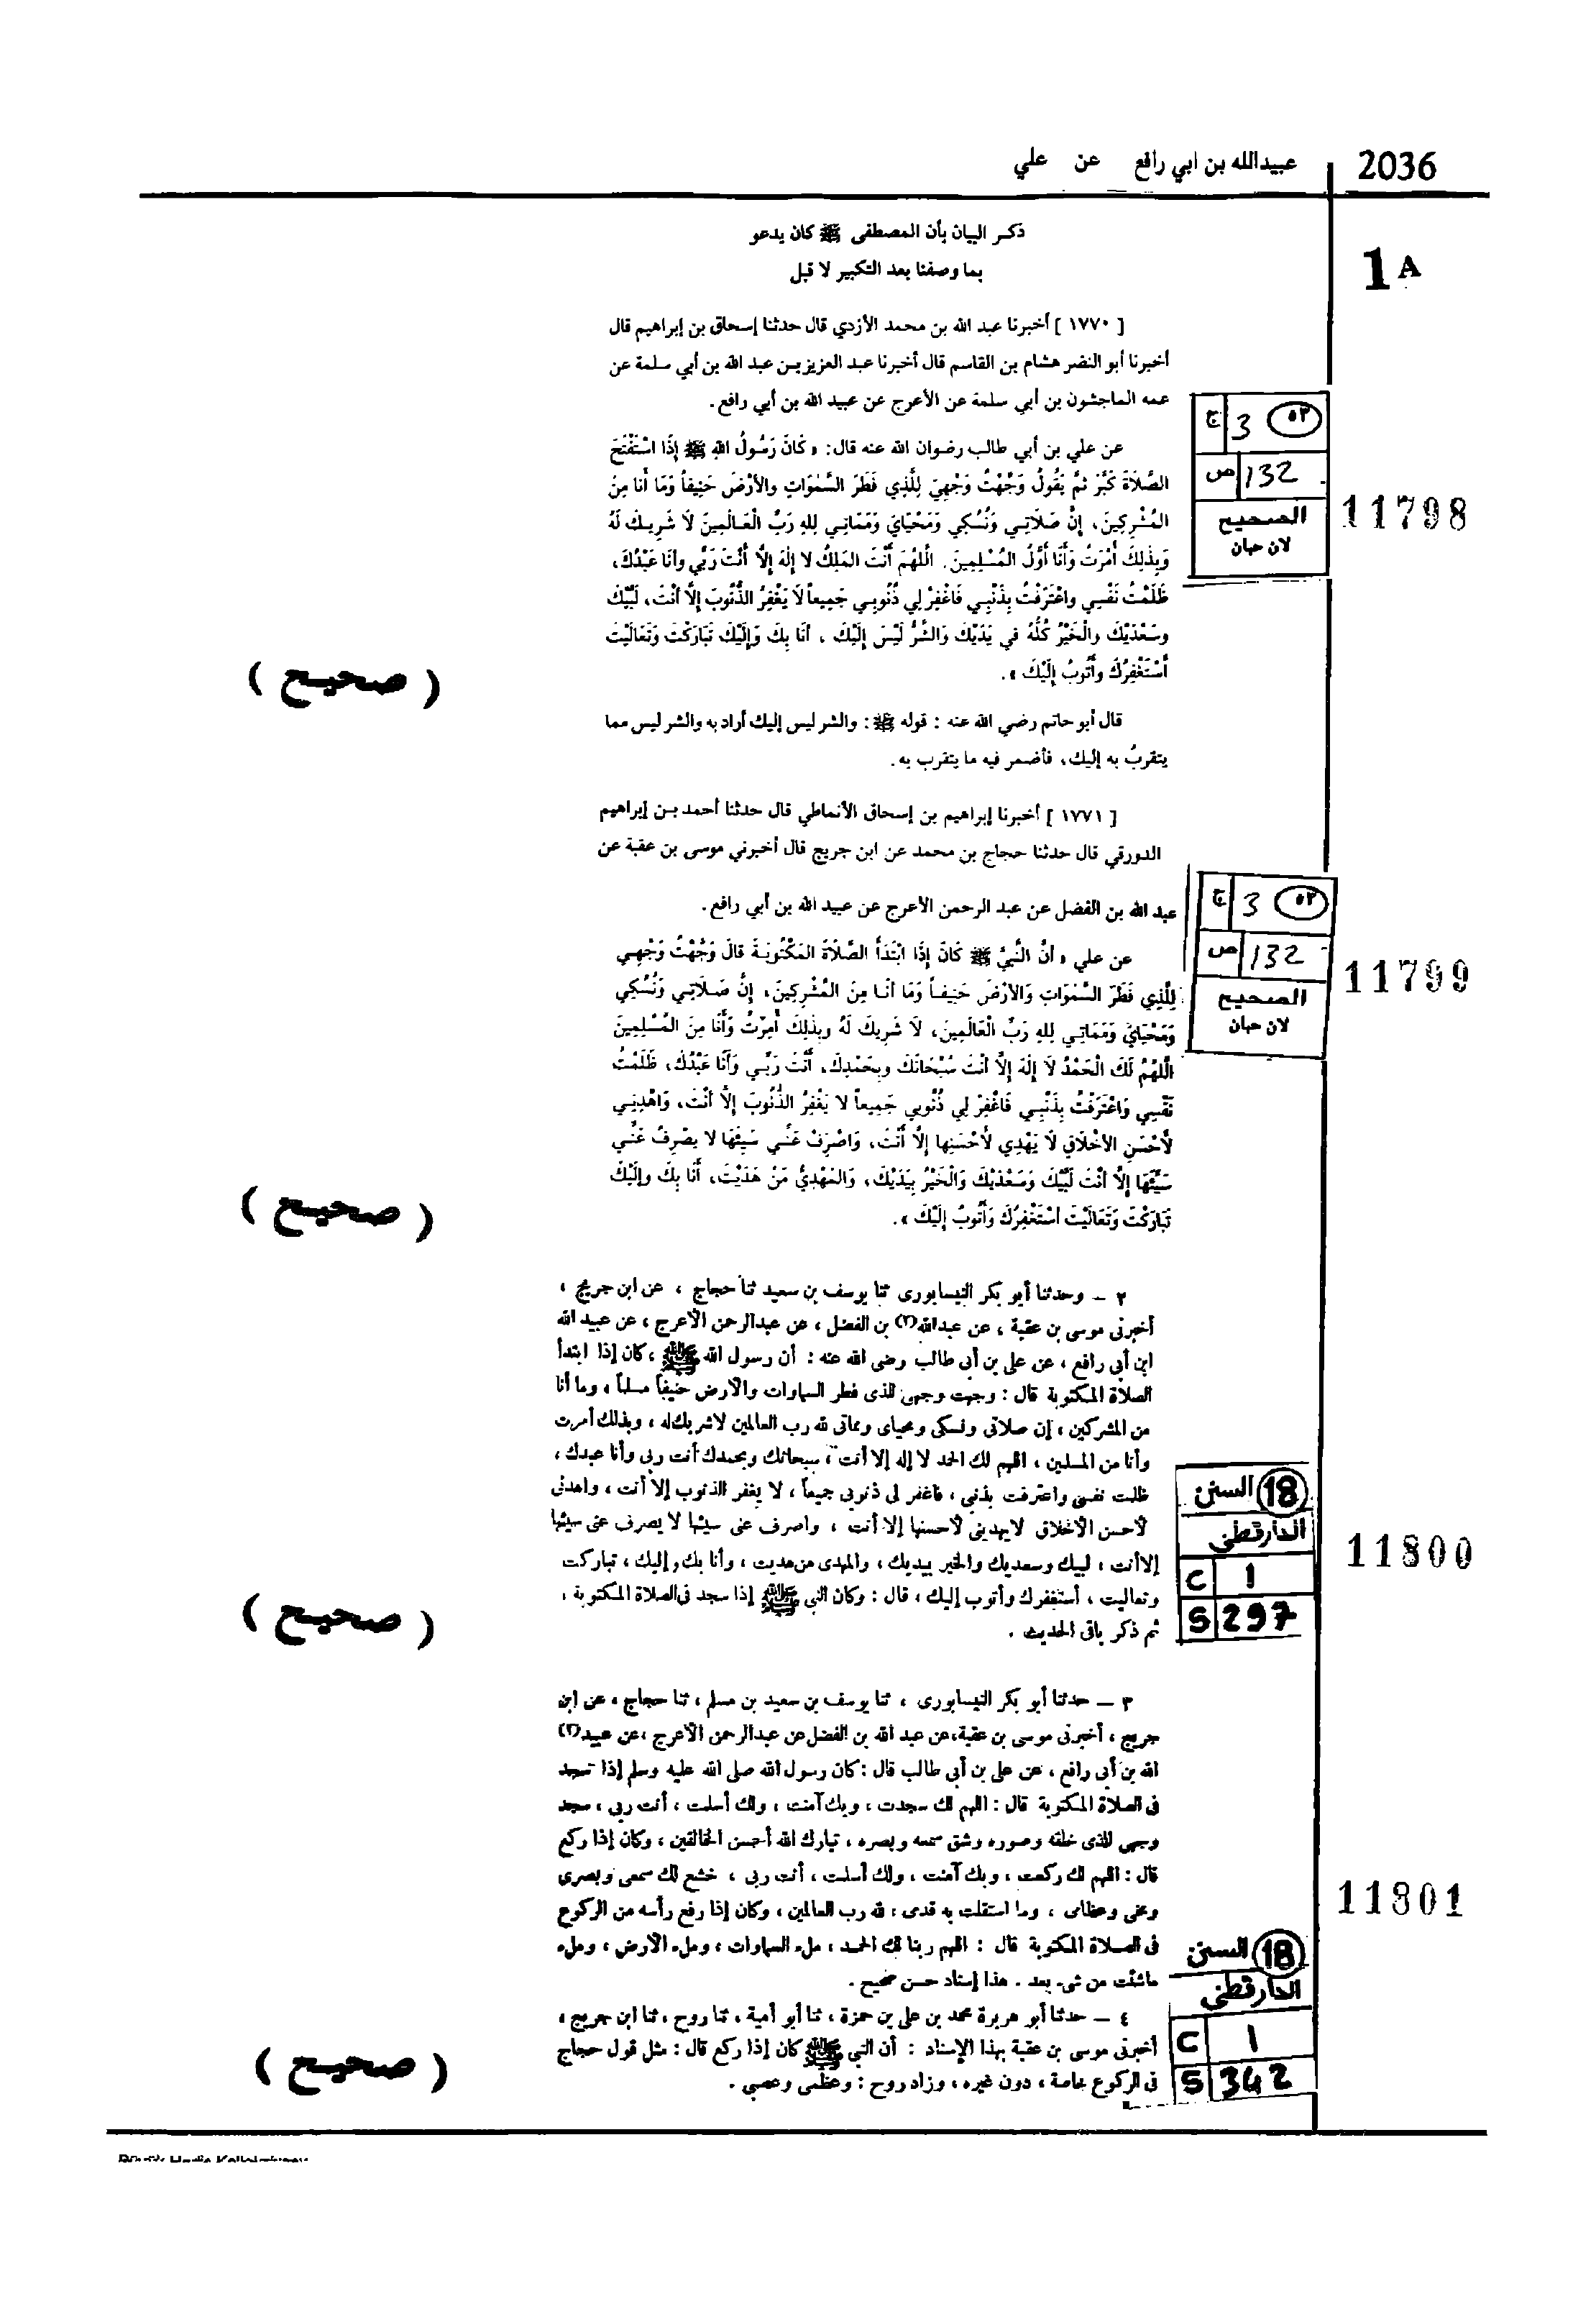 2036
عبيدالله بن ابي رافع عن علي
1 A
ذكر البيان بأن المصطفى ﷺ كان يدعو
بما وصفنا بعد التكبير لا قبل
[ ١٧٧٠ ] أخبرنا عبد الله بن محمد الأزدي قال حدثنا إسحاق بن إبراهيم قال
أخبرنا أبو النضر هشام بن القاسم قال أخبرنا عبد العزيز بن عبد الله بن أبي سلمة عن
عمه الماجشون بن أبي سلمة عن الأعرج عن عبيد الله بن أبي رافع.
عن علي بن أبي طالب رضوان الله عنه قال: «كَانَ رَسُولُ اللهِ ﷺ إِذَا اسْتَفْتَحَ
الصَّلَاةَ كَبَّرَ ثُمَّ يَقُولُ وَجَّهْتُ وَجْهِيَ لِلَّذِي فَطَرَ السَّمٰوَاتِ والأرْضَ حَنِيفاً وَمَا أَنَا مِنَ
المُشْرِكِينَ، إِنَّ صَلَاتِي وَنُسُكِي وَمَحْيَايَ وَمَمَاتِي لِلهِ رَبِّ الْعَالَمِينَ لَا شَرِيكَ لَهُ
وَبِذٰلِكَ أُمِرْتُ وَأَنَا أَوَّلُ المُسْلِمِينَ. اللَّهُمَّ أَنْتَ المَلِكُ لا إِلٰهَ إِلَّا أَنْتَ رَبِّي وأَنَا عَبْدُكَ،
ظَلَمْتُ نَفْسِي واعْتَرَفْتُ بِذَنْبِي فَاغْفِرْ لِي ذُنُوبِي جَمِيعاً لَا يَغْفِرُ الذُّنُوبَ إِلَّا أَنْتَ، لَبَّيْكَ
وسَعْدَيْكَ والْخَيْرُ كُلُّهُ في يَدَيْكَ وَالشَّرُّ لَيْسَ إِلَيْكَ ، أنَا بِكَ وَإِلَيْكَ تَبَارَكْتَ وَتَعَالَيْتَ
أَسْتَغْفِرُكَ وأَتُوبُ إِلَيْكَ ».
( صحيح )
ج 3 ٥٣
ص 132
الصحيح
لابن حبان
11798
قال أبو حاتم رضي الله عنه : قوله ﷺ: والشر ليس إليك أراد به والشر ليس مما
يتقربُ به إليك، فأضمر فيه ما يتقرب به.
[ ١٧٧١ ] أخبرنا إبراهيم بن إسحاق الأنماطي قال حدثنا أحمد بن إبراهيم
الدورقي قال حدثنا حجاج بن محمد عن ابن جريج قال أخبرني موسى بن عقبة عن
عبد الله بن الفضل عن عبد الرحمن الأعرج عن عبيد الله بن أبي رافع.
عن علي «أنَّ النَّبِيَّ ﷺ كَانَ إِذَا ابْتَدَأَ الصَّلَاةَ المَكْتُوبَةَ قالَ وَجَّهْتُ وَجْهِي
لِلَّذِي فَطَرَ السَّمٰوَاتِ وَالأرْضَ حَنِيفاً وَمَا أَنَا مِنَ المُشْرِكِينَ، إِنَّ صَلَاتِي وَنُسُكِي
وَمَحْيَايَ وَمَمَاتِي لِلهِ رَبِّ الْعَالَمِينَ، لَا شَرِيكَ لَهُ وبِذٰلِكَ أُمِرْتُ وَأَنَا مِنَ المُسْلِمِينَ
اللَّهُمَّ لَكَ الْحَمْدُ لَا إِلٰهَ إِلَّا أَنْتَ سُبْحَانَكَ وبِحَمْدِكَ، أَنْتَ رَبِّي وَأَنَا عَبْدُكَ، ظَلَمْتُ
نَفْسِي وَاعْتَرَفْتُ بِذَنْبِي فَاغْفِرْ لِي ذُنُوبي جَمِيعاً لا يَغْفِرُ الذُّنُوبَ إِلاَّ أَنْتَ، وَاهْدِنِي
لأحْسَنِ الأخْلَاقِ لَا يَهْدِي لأَحْسَنِها إِلَّا أَنْتَ، وَاصْرِفْ عَنِّي سَيِّئَهَا لا يَصْرِفُ عَنِّي
سَيِّئَهَا إِلَّا أنْتَ لَبَّيْكَ وَسَعْدَيْكَ وَالْخَيْرُ بِيَدَيْكَ، وَالمَهْدِيُّ مَنْ هَدَيْتَ، أَنَا بِكَ وإِلَيْكَ
تَبَارَكْتَ وَتَعَالَيْتَ أَسْتَغْفِرُكَ وَأَتُوبُ إِلَيْكَ ».
( صحيح )
ج 3 ٥٣
ص 132
الصحيح
لابن حبان
11799
٢ – وحدثنا أبو بكر النيسابورى ثنا يوسف بن سعيد ثنا حجاج ، عن ابن جريج ،
أخبرنى موسى بن عقبة ، عن عبدالله(٢) بن الفضل ، عن عبدالرحمن الأعرج ، عن عبيد الله
ابن أبى رافع ، عن على بن أبى طالب رضى الله عنه : أن رسول الله ﷺ ، كان إذا ابتدأ
الصلاة المكتوبة قال : وجهت وجهى للذى فطر السماوات والأرض حنيفاً مسلماً ، وما أنا
من المشركين ، إن صلاتى ونسكى ومحياى ومماتى لله رب العالمين لاشريك له ، وبذلك أمرت
وأنا من المسلمين ، اللهم لك الحمد لا إله إلا أنت ، سبحانك وبحمدك أنت ربى وأنا عبدك ،
ظلمت نفسى واعترفت بذنبى ، فاغفر لى ذنوبى جميعاً ، لا يغفر الذنوب إلا أنت ، واهدنى
لأحسن الأخلاق لايهدينى لأحسنها إلا أنت ، واصرف عنى سيئها لا يصرف عنى سيئها
إلاأنت ، لبيك وسعديك والخير بيديك ، والمهدى من هديت ، وأنا بك وإليك ، تباركت
وتعاليت ، أستغفرك وأتوب إليك ، قال : وكان النبى ﷺ إذا سجد فى الصلاة المكتوبة ،
ثم ذكر باقى الحديث .
( صحيح )
18 السنن
الدارقطني
C 1
S 297
11800
٣ – حدثنا أبو بكر النيسابورى ، ثنا يوسف بن سعيد بن مسلم ، ثنا حجاج ، عن ابن
جريج ، أخبرنى موسى بن عقبة، عن عبد الله بن الفضل عن عبدالرحمن الأعرج ، عن عبيد(٢)
الله بن أبى رافع ، عن على بن أبى طالب قال : كان رسول الله صلى الله عليه وسلم إذا سجد
فى الصلاة المكتوبة قال : اللهم لك سجدت ، وبك آمنت ، ولك أسلمت ، أنت ربى ، سجد
وجهى للذى خلقه وصوره وشق سمعه وبصره ، تبارك الله أحسن الخالقين ، وكان إذا ركع
قال : اللهم لك ركعت ، وبك آمنت ، ولك أسلمت ، أنت ربى ، خشع لك سمعى وبصرى
ومخى وعظامى ، وما استقلت به قدمى ، لله رب العالمين ، وكان إذا رفع رأسه من الركوع
فى الصلاة المكتوبة قال : اللهم ربنا لك الحمد ، ملء السماوات ، وملء الأرض ، وملء
ماشئت من شىء بعد . هذا إسناد حسن صحيح .
11801
٤ – حدثنا أبو هريرة محمد بن على بن حمزة ، ثنا أبو أمية ، ثنا روح ، ثنا ابن جريج ،
أخبرنى موسى بن عقبة بهذا الإسناد : أن النبى ﷺ كان إذا ركع قال : مثل قول حجاج
فى الركوع خاصة ، دون غيره ، وزاد روح : وعظمى وعصبى .
( صحيح )
18 السنن
الدارقطني
C 1
S 342